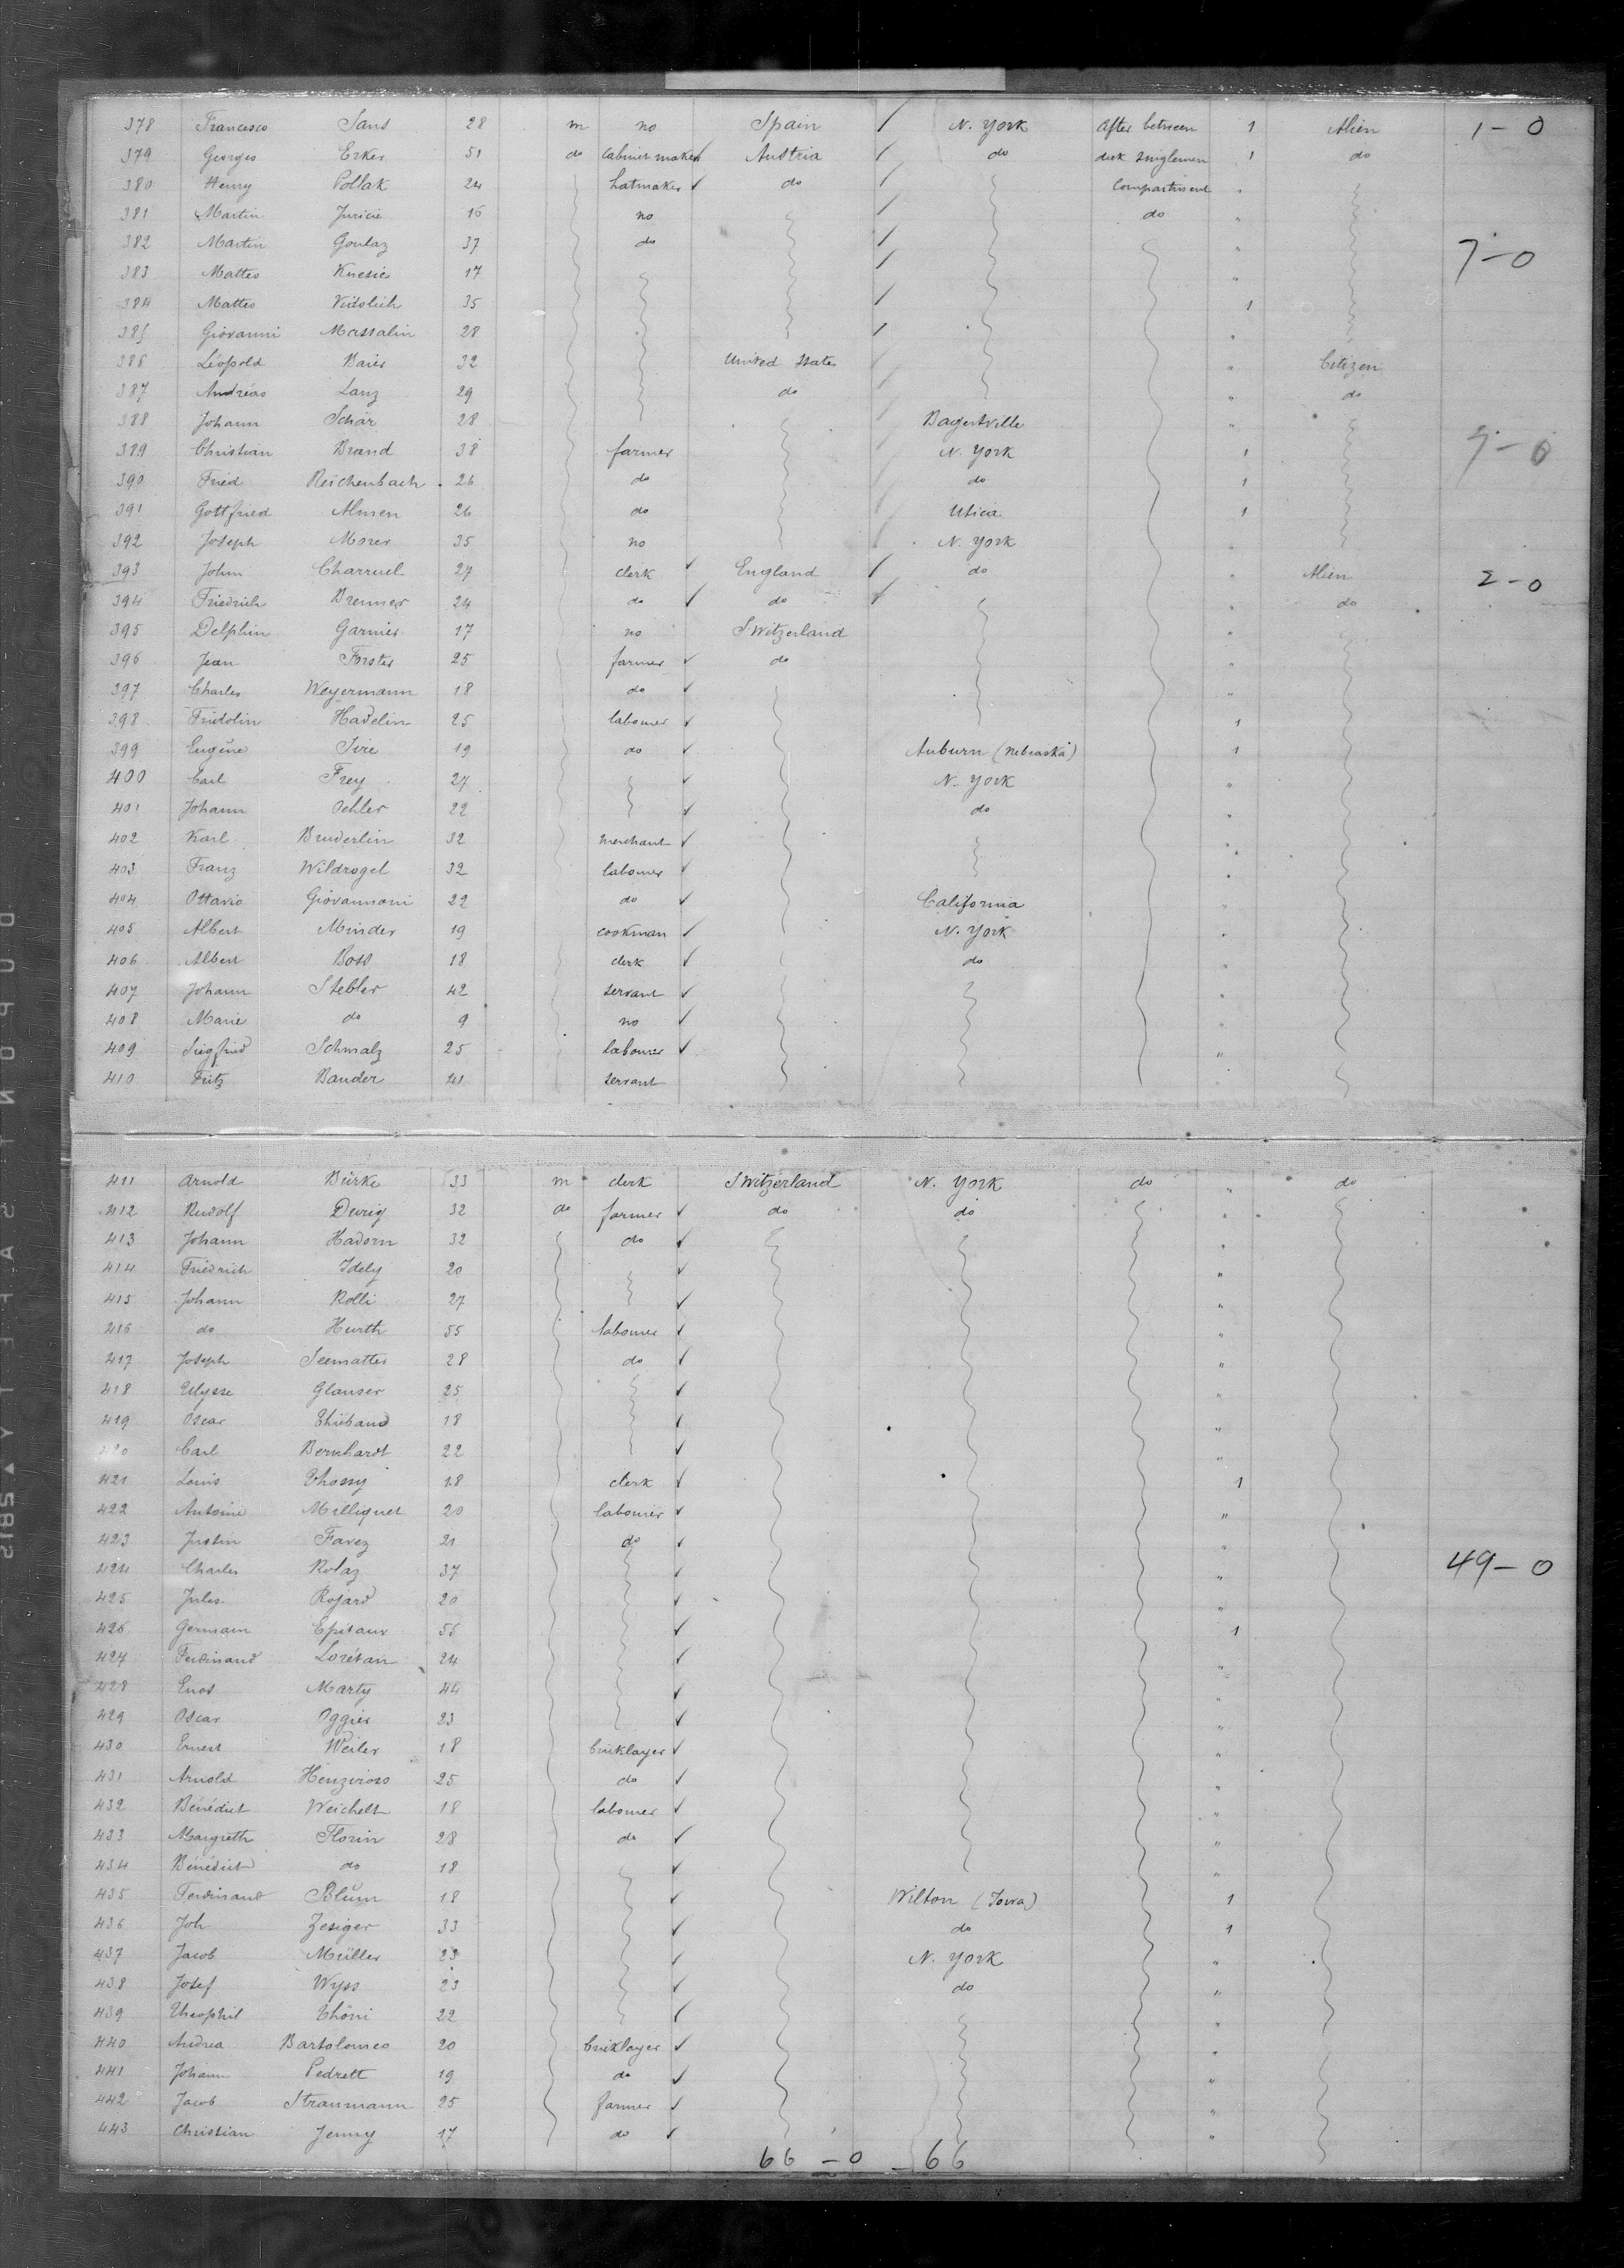 378 Francesco Sans 28 m no Spain / N. York After between 1 Alien 1 - 0
379 Georges Erker 51 do Cabinet maker Austria / do deck singlemen 1 do
380 Henry Pollak 24 hatmaker ✓ do / Compartiment "
381 Martin Juricie 16 no / do "
382 Martin Goulaz 37 do / " 7 - 0
383 Matteo Knesic 17 / "
384 Matteo Vidolich 35 / 1
385 Giovanni Massalin 28 / "
386 Léopold Baier 32 United States / " Citizen
387 Andréas Lanz 29 do / " do
388 Johann Schär 28 / "
389 Christian Brand 38 farmer / N. York 1 7 - 0
390 Fried Reichenbach 26 do / do 1
391 Gottfried Almen 24 do / Utica 1
392 Joseph Morer 35 no / N. York "
393 John Charruel 27 clerk ✓ England / do " Alien 2 - 0
394 Friedrich Brenner 24 do ✓ do / " do
395 Delphin Garnier 17 no Switzerland "
396 Jean Forster 25 farmer ✓ do "
397 Charles Weyermann 18 do ✓ "
398 Fridolin Hadelin 25 labourer ✓ 1
399 Eugène Sire 19 do ✓ Auburn (Nebraska) 1
400 Carl Frey 27 ✓ N. York "
401 Johann Oehler 22 ✓ do "
402 Karl Bruderlin 32 merchant ✓ "
403 Franz Wildrogel 32 labourer ✓ "
404 Ottavio Giovannoni 22 do ✓ California "
405 Albert Minder 19 cookman ✓ N. York "
406 Albert Boss 18 clerk ✓ do "
407 Johann Stebler 42 servant ✓ "
408 Marie do 9 no ✓ "
409 Siegfried Schmalz 25 labourer ✓ "
410 Fritz Bander 41 servant "
411 Arnold Bürke 33 m clerk Switzerland N. York do " do
412 Rudolf Durig 32 do farmer ✓ do do "
413 Johann Hadorn 32 do ✓ "
414 Friedrich Idely 20 ✓ "
415 Johann Rolli 27 ✓ "
416 do Hurth 55 labourer ✓ "
417 Joseph Seematter 28 do ✓ "
418 Ulysse Glauser 25 ✓ "
419 Oscar Thiébaud 18 ✓ "
420 Carl Bernhardt 22 ✓ "
421 Louis Thossy 18 clerk ✓ 1
422 Antoine Milliquet 20 labourer ✓ "
423 Justin Favez 21 do ✓ "
424 Charles Rolaz 37 ✓ " 49 - 0
425 Jules Rojard 20 ✓ "
426 Germain Epitaux 55 ✓ 1
427 Ferdinand Lorétan 24 ✓ "
428 Enos Marty 44 ✓ "
429 Oscar Oggier 23 ✓ "
430 Ernest Weiler 18 bricklayer ✓ "
431 Arnold 25 do ✓ "
432 Bénédict Weichelt 18 labourer ✓ "
433 Margreth Florin 28 do ✓ "
434 Bénédict do 18 ✓ "
435 Ferdinand Blum 18 ✓ Wilton (Iowa) 1
436 Joh Zesiger 33 ✓ do 1
437 Jacob Müller 23 ✓ N. York "
438 Josef Wyss 23 ✓ do "
439 Théophil Thöni 22 ✓ "
440 Andrea Bartolomeo 20 bricklayer ✓ "
441 Johann Pedrett 19 do ✓ "
442 Jacob Straumann 25 farmer ✓ "
443 Christian Jenny 17 do ✓ "
66 - 0 - 66